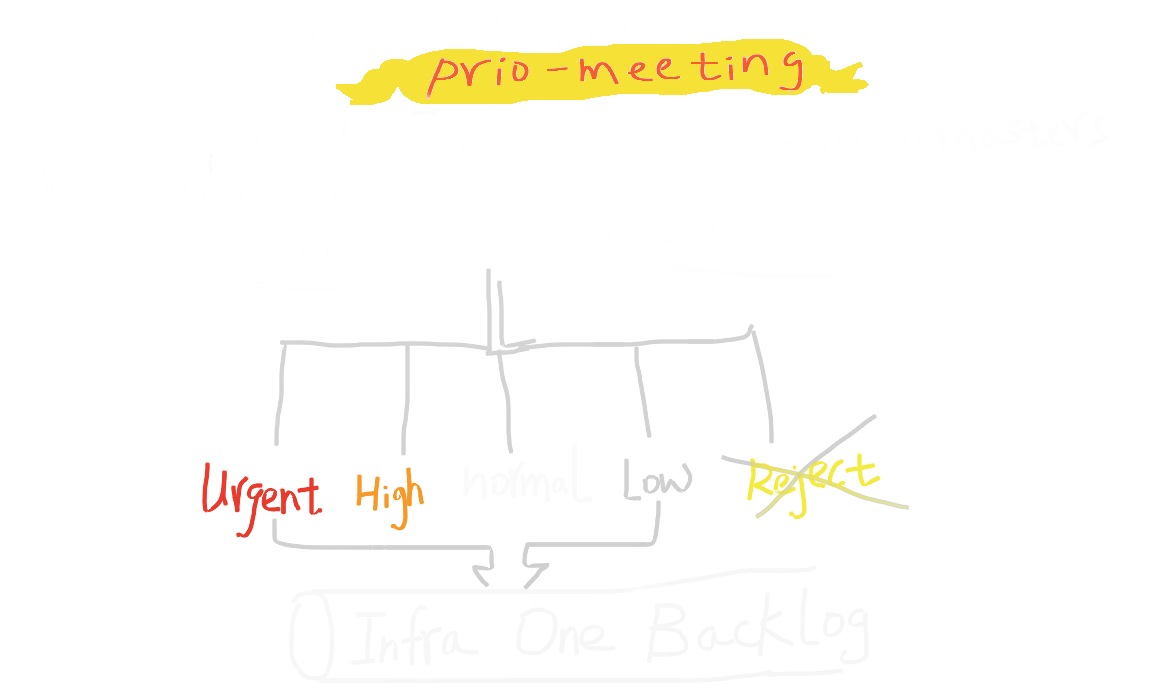 prio-meeting
masters
Urgent High normal Low Reject
Infra One Backlog